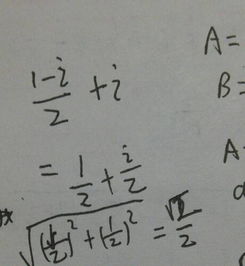 (1-i)/2 + i
= 1/2 + i/2
√((1/2)² + (1/2)²) = √2/2
A=
B=
A